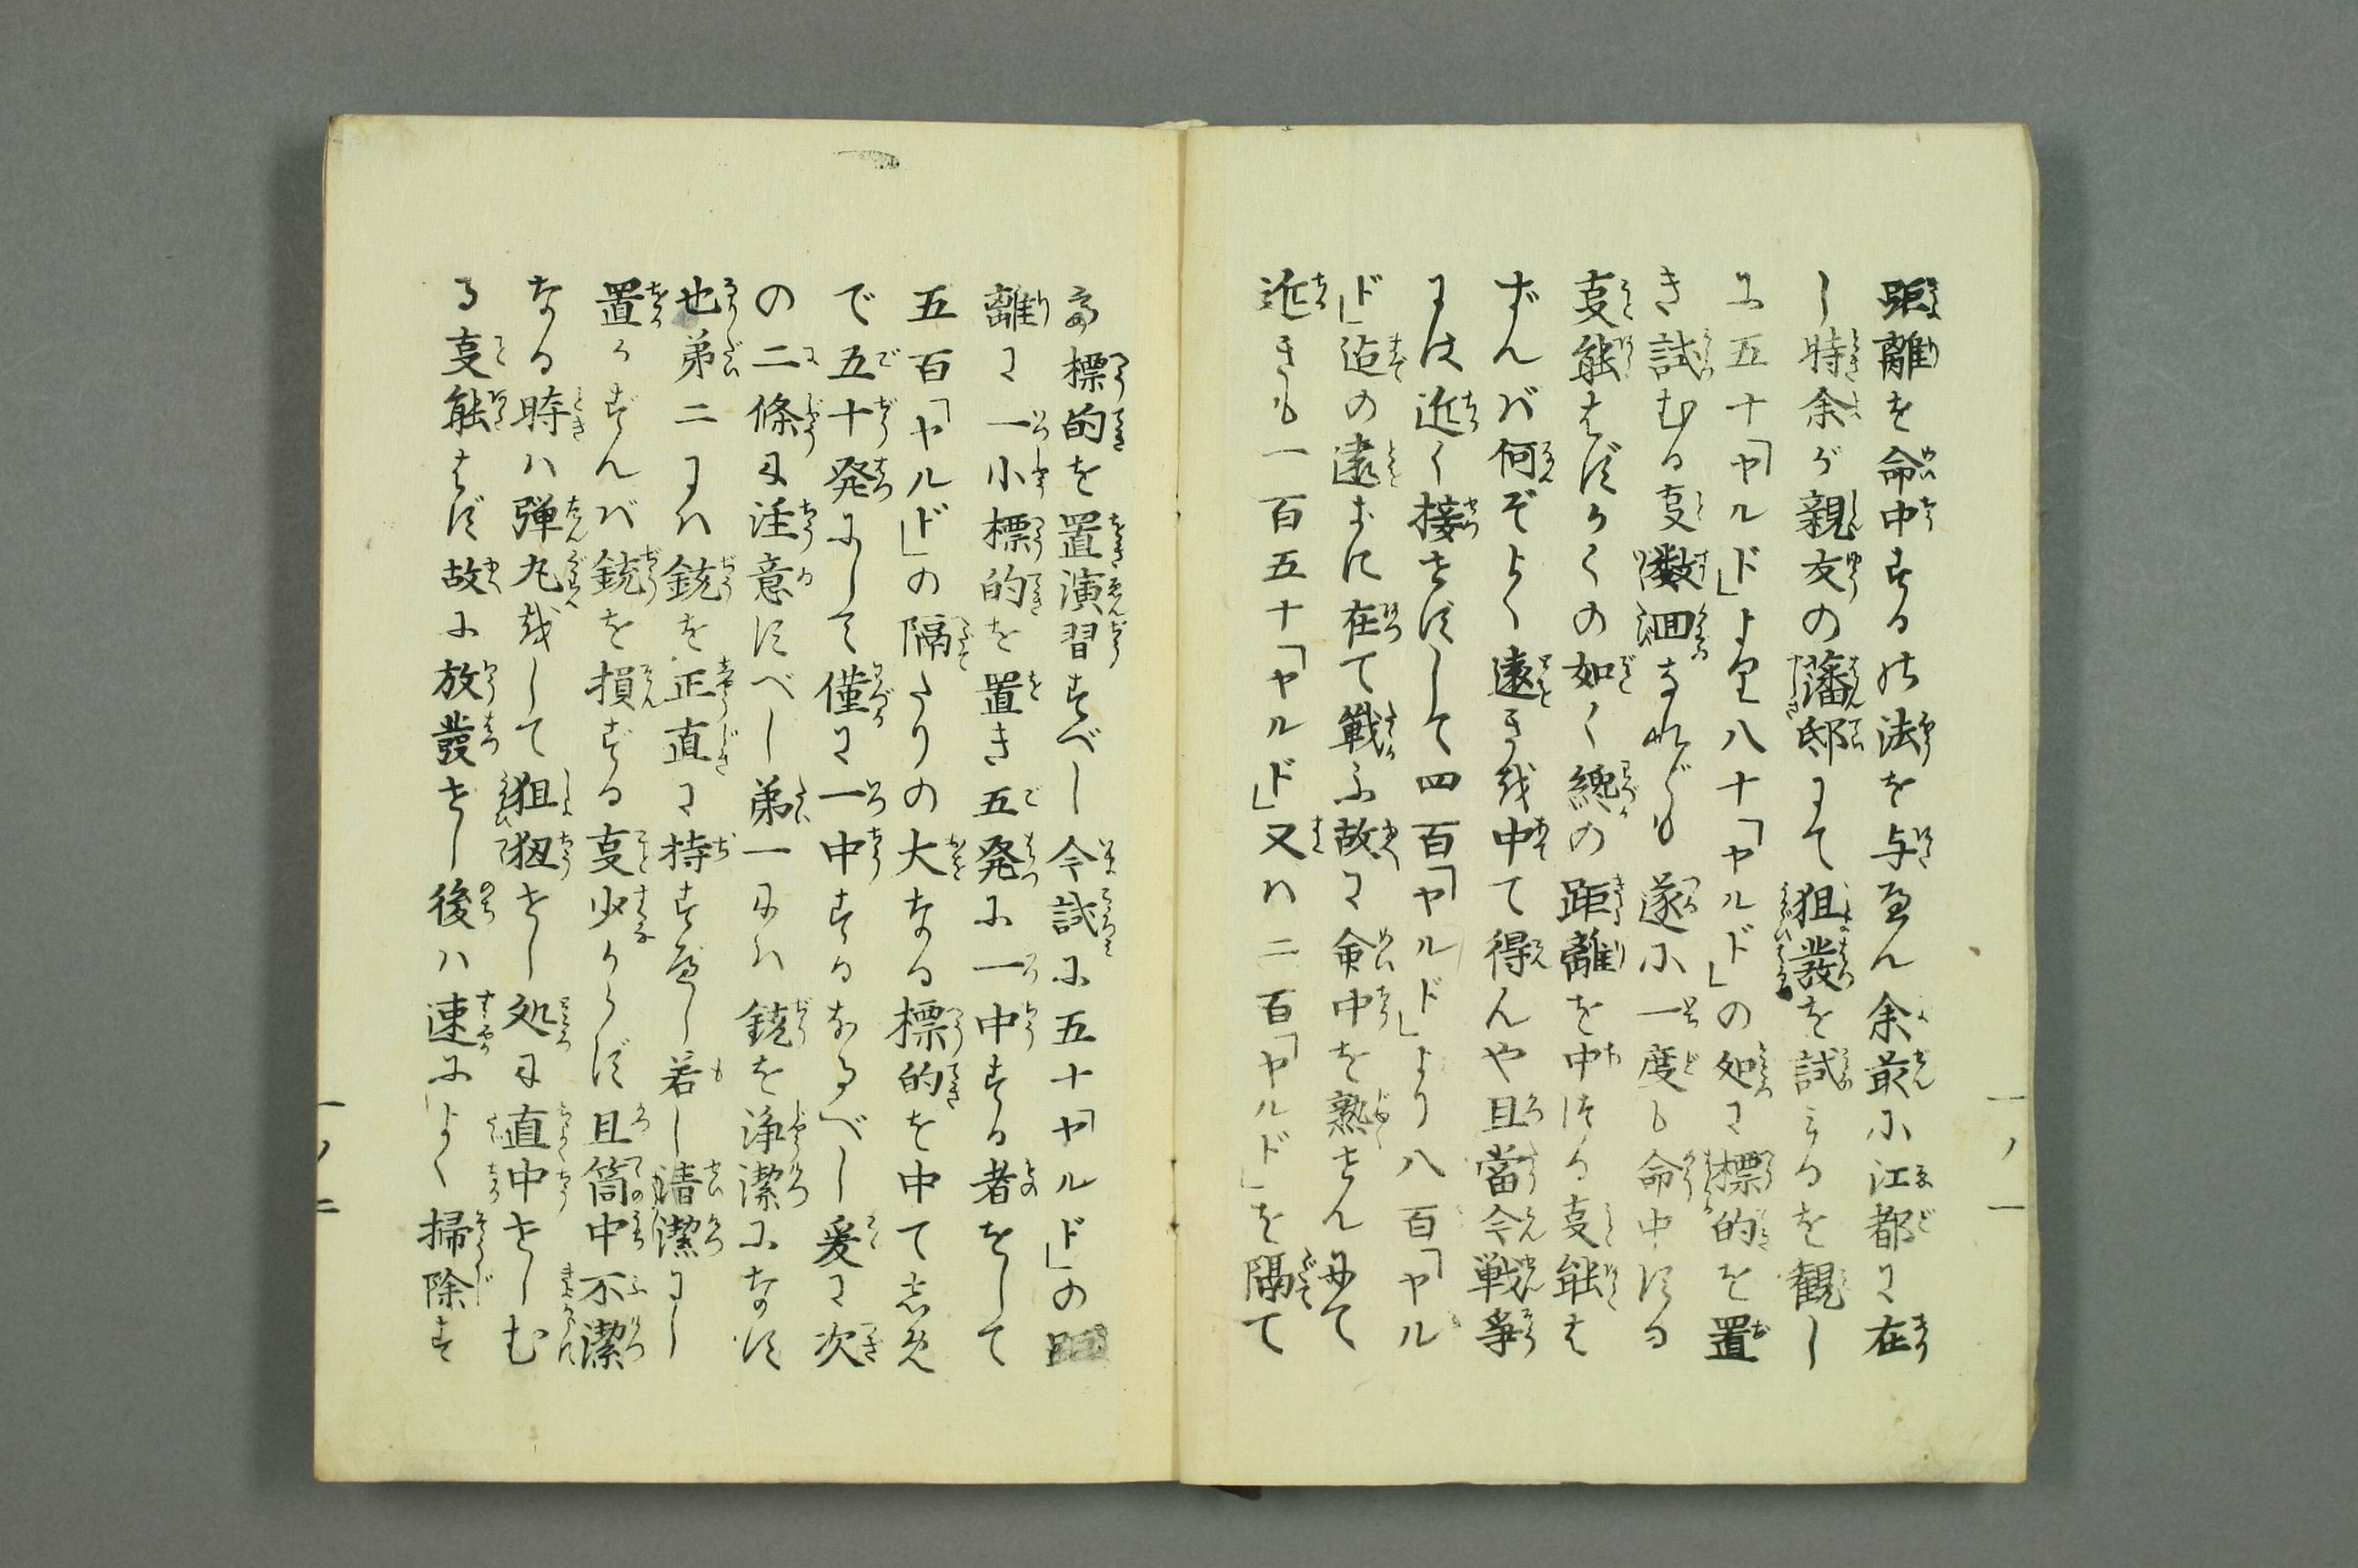 距離を命中する の法を与へん余最に江都に在
し時余が親友の藩邸にて狙發を試みるを観し
に五十「ヤルド」より八十「ヤルド」の処に標的を置
き試むる叓数囬なれども遂に一度も命中する
叓能はずかくの如く纔の距離を中する叓能は
ずんバ何ぞよく遠きを中て得んや且當今戦争
には近く接せずして四百「ヤルド」より八百「ヤル
ド」迠の遠きに在て戦ふ故に命中を熟せんにて
近きも一百五十「ヤルド」又ハ二百「ヤルド」を隔て
一ノ一
標的を置演習すべし今試に五十「ヤルド」の距
離に一小標的を置き五発に一中する者をして
五百「ヤルド」の隔たりの大なる標的を中てしめ
で五十発にして僅に一中するなるべし爰に次
の二條に注意すべし第一にハ銃を浄潔になす
也第二にハ銃を正直に持すべし若し清潔にし
置かずんバ銃を損ずる叓少からず且筒中不潔
なる時ハ弾丸をして狙狃せし処に直中せしむ
る叓能はず故に放發せし後ハ速によく掃除す
一ノ二